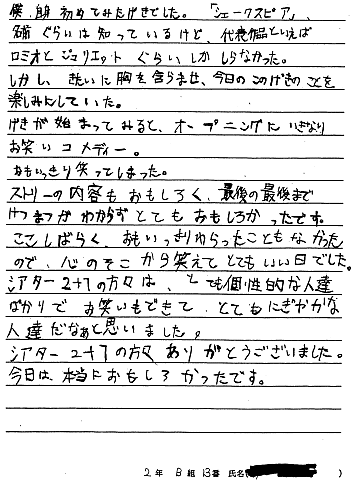 僕、初めてみたげきでした。「シェークスピア」、
名前ぐらいは知っているけど、代表作品といえば
ロミオとジュリエットぐらいしかしらなかった。
しかし、きたいに胸を含らませ、今日のこのげきのことを
楽しみにしていた。
げきが始まってみると、オープニングにいきなり
お笑いコメディー。
おもいっきり笑ってしまった。
ストリーの内容もおもしろく、最後の最後まで
けつまつがわからずとてもおもしろかったです。
ここしばらく、おもいっきりわらったこともなかった
ので、心のそこから笑えてとてもいい日でした。
シアター2+1の方々は、とても個性的な人達
ばかりで お笑いもできて、とてもにぎやかな
人達だなぁと思いました。
シアター2+1の方々ありがとうございました。
今日は、本当におもしろかったです。
2年 B組 13番 氏名( )